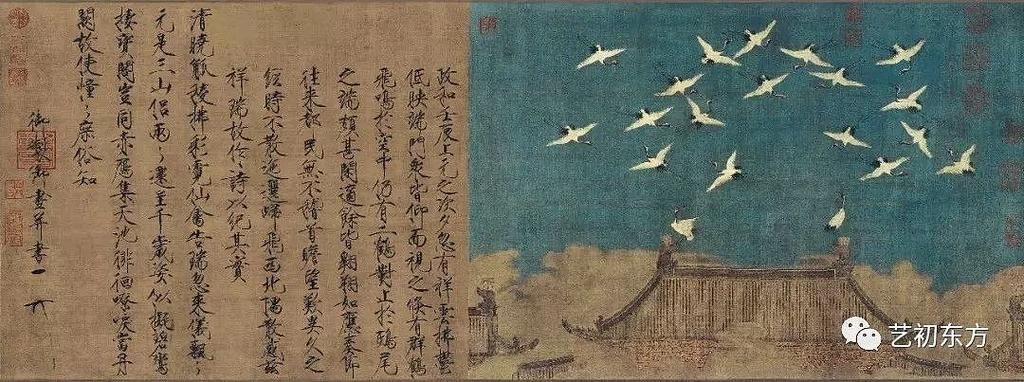 政和壬辰上元之次夕忽有祥雲拂鬱
低映端門衆皆仰而視之倐有群鶴
飛鳴於空中仍有二鶴對止於鴟尾
之端頗甚閒適餘皆翱翔如應奏節
往來都民無不稽首瞻望歎異久之
經時不散迤邐歸飛西北隅散感茲
祥瑞故作詩以紀其實
清曉觚稜拂彩霓仙禽告瑞忽來儀飄〻
元是三山侶兩〻還呈千歲姿似擬碧鸞
棲寶閣豈同赤鴈集天池徘徊嘹唳當丹
闕故使憧〻庶俗知
御製御畫并書
艺初东方